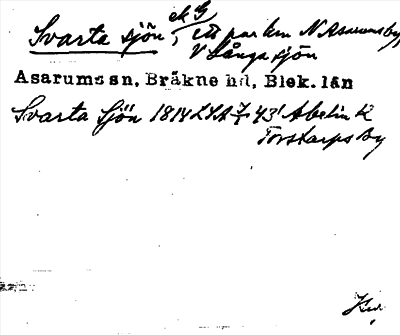 Svarta sjön, ek G, ett par km N Asarumsby,
V Långasjön
Asarums sn, Bräkne hd, Blek. län
Svarta Sjön 1814 LSA 7/1 43' Abelin k
Torstarps by